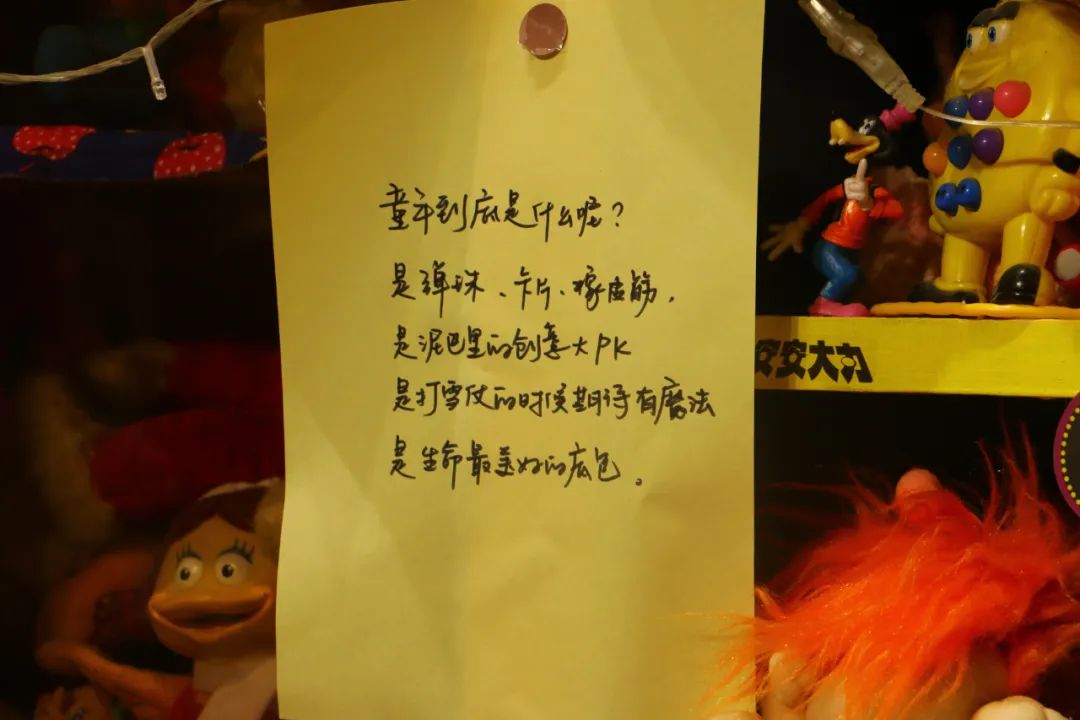 童年到底是什么呢？
是弹珠、卡片、橡皮筋，
是泥巴里的创意大PK
是打雪仗的时候期待有魔法
是生命最美好的底色。
安安大力